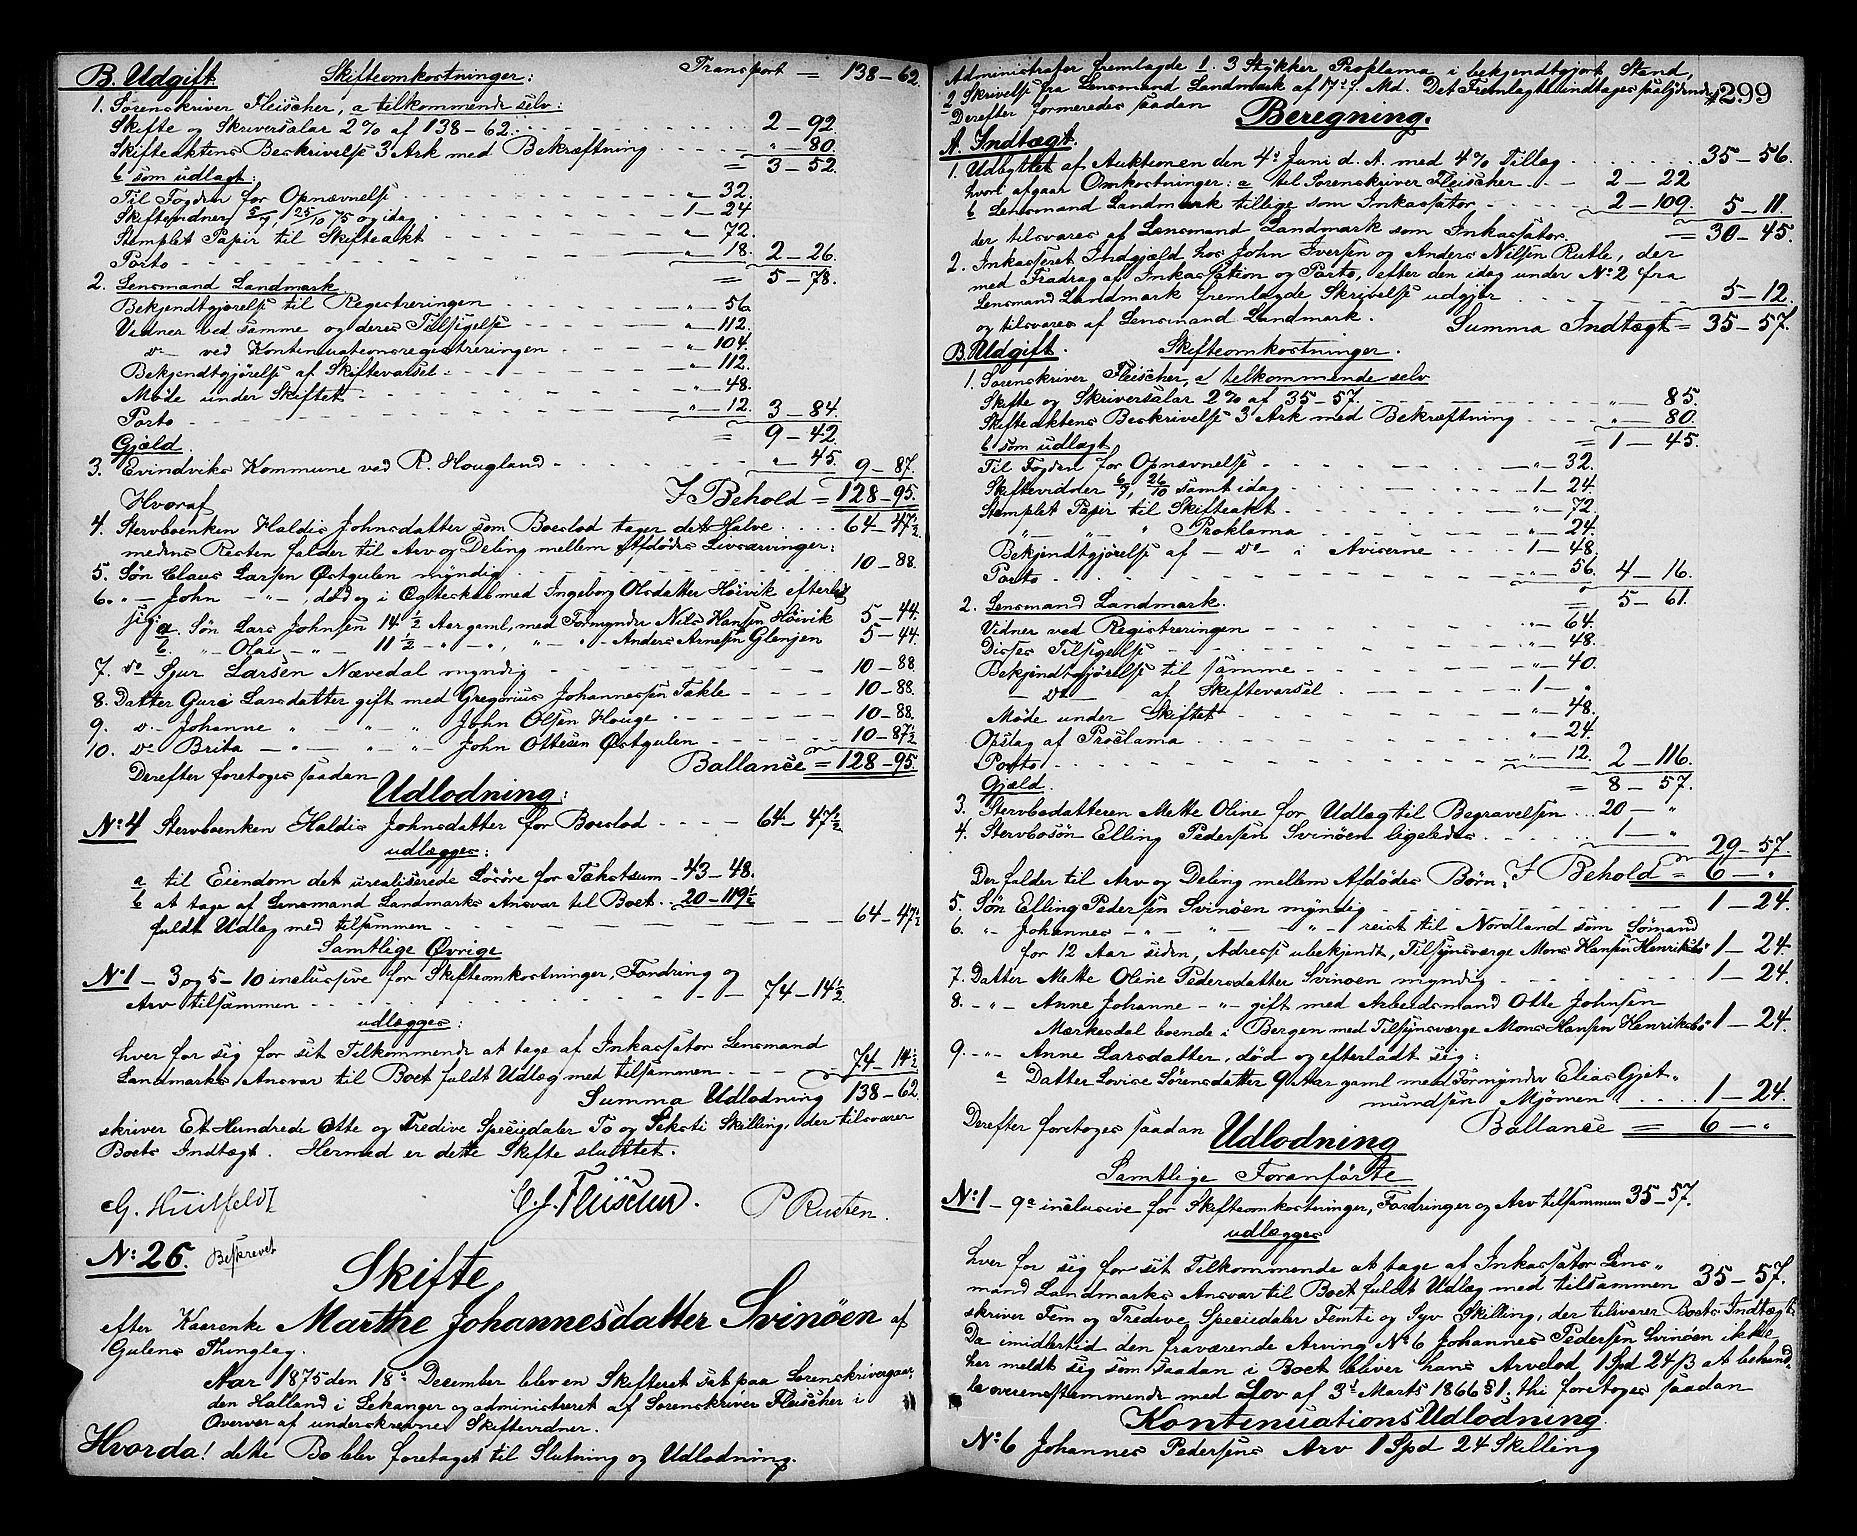 B. Udgift. Skifteomkostninger: Transport = 138-62.
1. Sorenskriver Fleischer, a tilkommende selv:
Skifte og Skriversalar 2% af 138-62. 2-92.
Skifteaktens Beskrivelse 3 Ark med Bekræftning "-80.
= 3-52.
b som udlagt:
Til Fogden for Opnævnelse "-32.
Skiftevidner 2/9, 25/10 75 og idag 1-24
Stemplet Papir til Skifteakt "-72.
Porto "-18. 2-26.
= 5-78.
2. Lensmand Landmark
Bekjendtgjørelse til Registreringen "-56.
Vidner ved samme og deres Tilsigelse "-112.
do ved Kontinuationsregistreringen "-104.
Bekjendtgjørelse af Skiftevarsel "-112.
Møde under Skiftet "-48.
Porto "-12. 3-84.
= 9-42.
Gjæld.
3. Evindviks Kommune ved R. Hougland "-45. 9-87.
I Behold = 128-95.
Hvoraf
4. Stervboenken Haldis Johnsdatter som Boeslod tager det Halve 64-47½
medens Resten falder til Arv og Deling mellem Afdødes Livsarvinger:
5. Søn Claus Larsen Østgulen myndig 10-88.
6. " - John - " - , død og i Egteskab med Ingeborg Olsdatter Høivik efterladt
sig: a. Søn Lars Johnsen 14½ Aar gaml, med Formynder Nils Hansen Høivik 5-44.
b. " - Olai - " - 11½ - " - " - , " - " - Anders Arnesen Glenjen 5-44
7. do Sjur Larsen Nævedal myndig 10-88.
8. Datter Guri Larsdatter gift med Gregorius Johannessen Takle 10-88.
9. do Johanne " - " - " John Olsen Houge 10-88.
10. do Brita - " - " - " John Ottesen Østgulen 10-87½
Ballance = 128-95.
Derefter foretoges saadan
Udlodning:
No 4 Stervboenken Haldis Johnsdatter for Boeslod 64-47½
udlægges:
a til Eiendom det urealiserede Løsøre for Takstsum 43-48.
b at tage af Lensmand Landmarks Ansvar til Boet 20-119½
fuldt Udlæg med tilsammen 64-47½
Samtlige Øvrige
No 1 - 3 og 5-10 inclussive for Skifteomkostninger, Fordring og
Arv tilsammen 74-14½
udlægges:
hver for sig for sit Tilkommende at tage af Inkassator Lensmand
Landmarks Ansvar til Boet fuldt Udlæg med tilsammen 74-14½
Summa Udlodning 138-62.
skriver Et Hundrede Otte og Tredive Speciedaler To og Seksti Skilling, der tilsvarer
Boets Indtægt. Hermed er dette Skifte sluttet.
G. Huitfeldt C J Fleischer. P Rusten.
No 26. Beskrevet
Skifte
efter Kaarenke Marthe Johannesdatter Svinöen af
Gulens Thinglag.
Aar 1875 den 18de December blev en Skifteret sat paa Sorenskrivergaar-
den Halland i Lekanger og administreret af Sorenskriver Fleischer i
Overvær af underskrevne Skiftevidner.
Hvorda! dette Bo blev foretaget til Slutning og Udlodning.
299
Administrator fremlagde 1. 3 Stykker Proklama i bekjendtgjort Stand,
2 Skrivelse fra Lensmand Landmark af 17de f. Md. Det Fremlagte indtages saalydende
Derefter formeredes saadan
Beregning.
A. Indtægt.
1. Udbyttet af Auktionen den 4de Juni d. A. med 4% Tillæg 35-56.
hvori afgaar Omkostninger: a til Sorenskriver Fleischer 2-22
b Lensmand Landmark tillige som Inkassator 2-109. 5-11.
der tilsvares af Lensmand Landmark som Inkassator = 30-45.
2. Inkasseret Indgjæld hos John Iversen og Anders Nilsen Rutle, der
med Fradrag af Inkassation og Porto, efter den idag under No 2 fra
Lensmand Landmark fremlagde Skrivelse udgjør 5-12.
og tilsvares af Lensmand Landmark. Summa Indtægt = 35-57.
B. Udgift. Skifteomkostninger.
1. Sorenskriver Fleischer, a tilkommende selv
Skifte og Skriversalar 2% af 35-57. "-85.
Skifteaktens Beskrivelse 3 Ark med Bekræftning "-80.
= 1-45.
b som udlagt
Til Fogden for Opnævnelse "-32.
Skiftevidner 6/9, 26/10 samt idag 1-24.
Stemplet Papir til Skifteakt "-72
" - " - " Proklama "-24.
Bekjendtgjørelse af - do - i Aviserne 1-48.
Porto "-56. 4-16.
= 5-61.
2. Lensmand Landmark.
Vidner ved Registreringen "-64.
Disses Tilsigelse "-48.
Bekjendtgjørelse til samme "-40.
- do - af Skiftevarsel 1-".
Møde under Skiftet "-48.
Opslag af Proclama "-24.
Porto "-12. 2-116.
= 8-57.
Gjæld.
3. Stervbodatteren Mette Oline for Udlæg til Begravelsen 20-"
4. Stervbosøn Elling Pedersen Svinöen ligeledes 1-"
29-57.
Der falder til Arv og Deling mellem Afdødes Børn, I Behold = 6-".
5. Søn Elling Pedersen Svinöen myndig 1-24.
6. " - Johannes - " - " - " - reist til Nordland som Sømand
for 12 Aar siden, Adresse ubekjendt, Tilsynsværge Mons Hansen Henriksbø 1-24.
7. Datter Mette Oline Pedersdatter Svinöen myndig 1-24.
8. - " - Anne Johanne - " - gift med Arbeidsmand Otte Johnsen
Mærkesdal boende i Bergen med Tilsynsværge Mons Hansen Henriksbø 1-24.
9. - " - Anne Larsdatter, død og efterladt sig:
a Datter Lovise Sørensdatter 9 Aar gaml med Formynder Elias Gjet-
mundsen Mjömen 1-24.
Ballance = 6-".
Derefter foretoges saadan
Udlodning
Samtlige Foranførte
No 1 - 9a inclusive for Skifteomkostninger, Fordringer og Arv tilsammen 35-57.
udlægges
hver for sig for sit Tilkommende at tage af Inkassator Lens-
mand Landmarks Ansvar til Boet fuldt Udlæg med tilsammen 35-57.
skriver Fem og Tredive Speciedaler Femti og Syv Skilling, der tilsvarer Boets Indtægt.
Da imidlertid den fraværende Arving No 6 Johannes Pedersen Svinöen ikke
har meldt sig som saadan i Boet bliver hans Arvelod 1 Spd 24 ß at behand-
le overensstemmende med Lov af 3de Marts 1866 § 1. thi foretoges saadan
Kontinuations Udlodning.
No 6 Johannes Pedersens Arv 1 Spd 24 Skilling